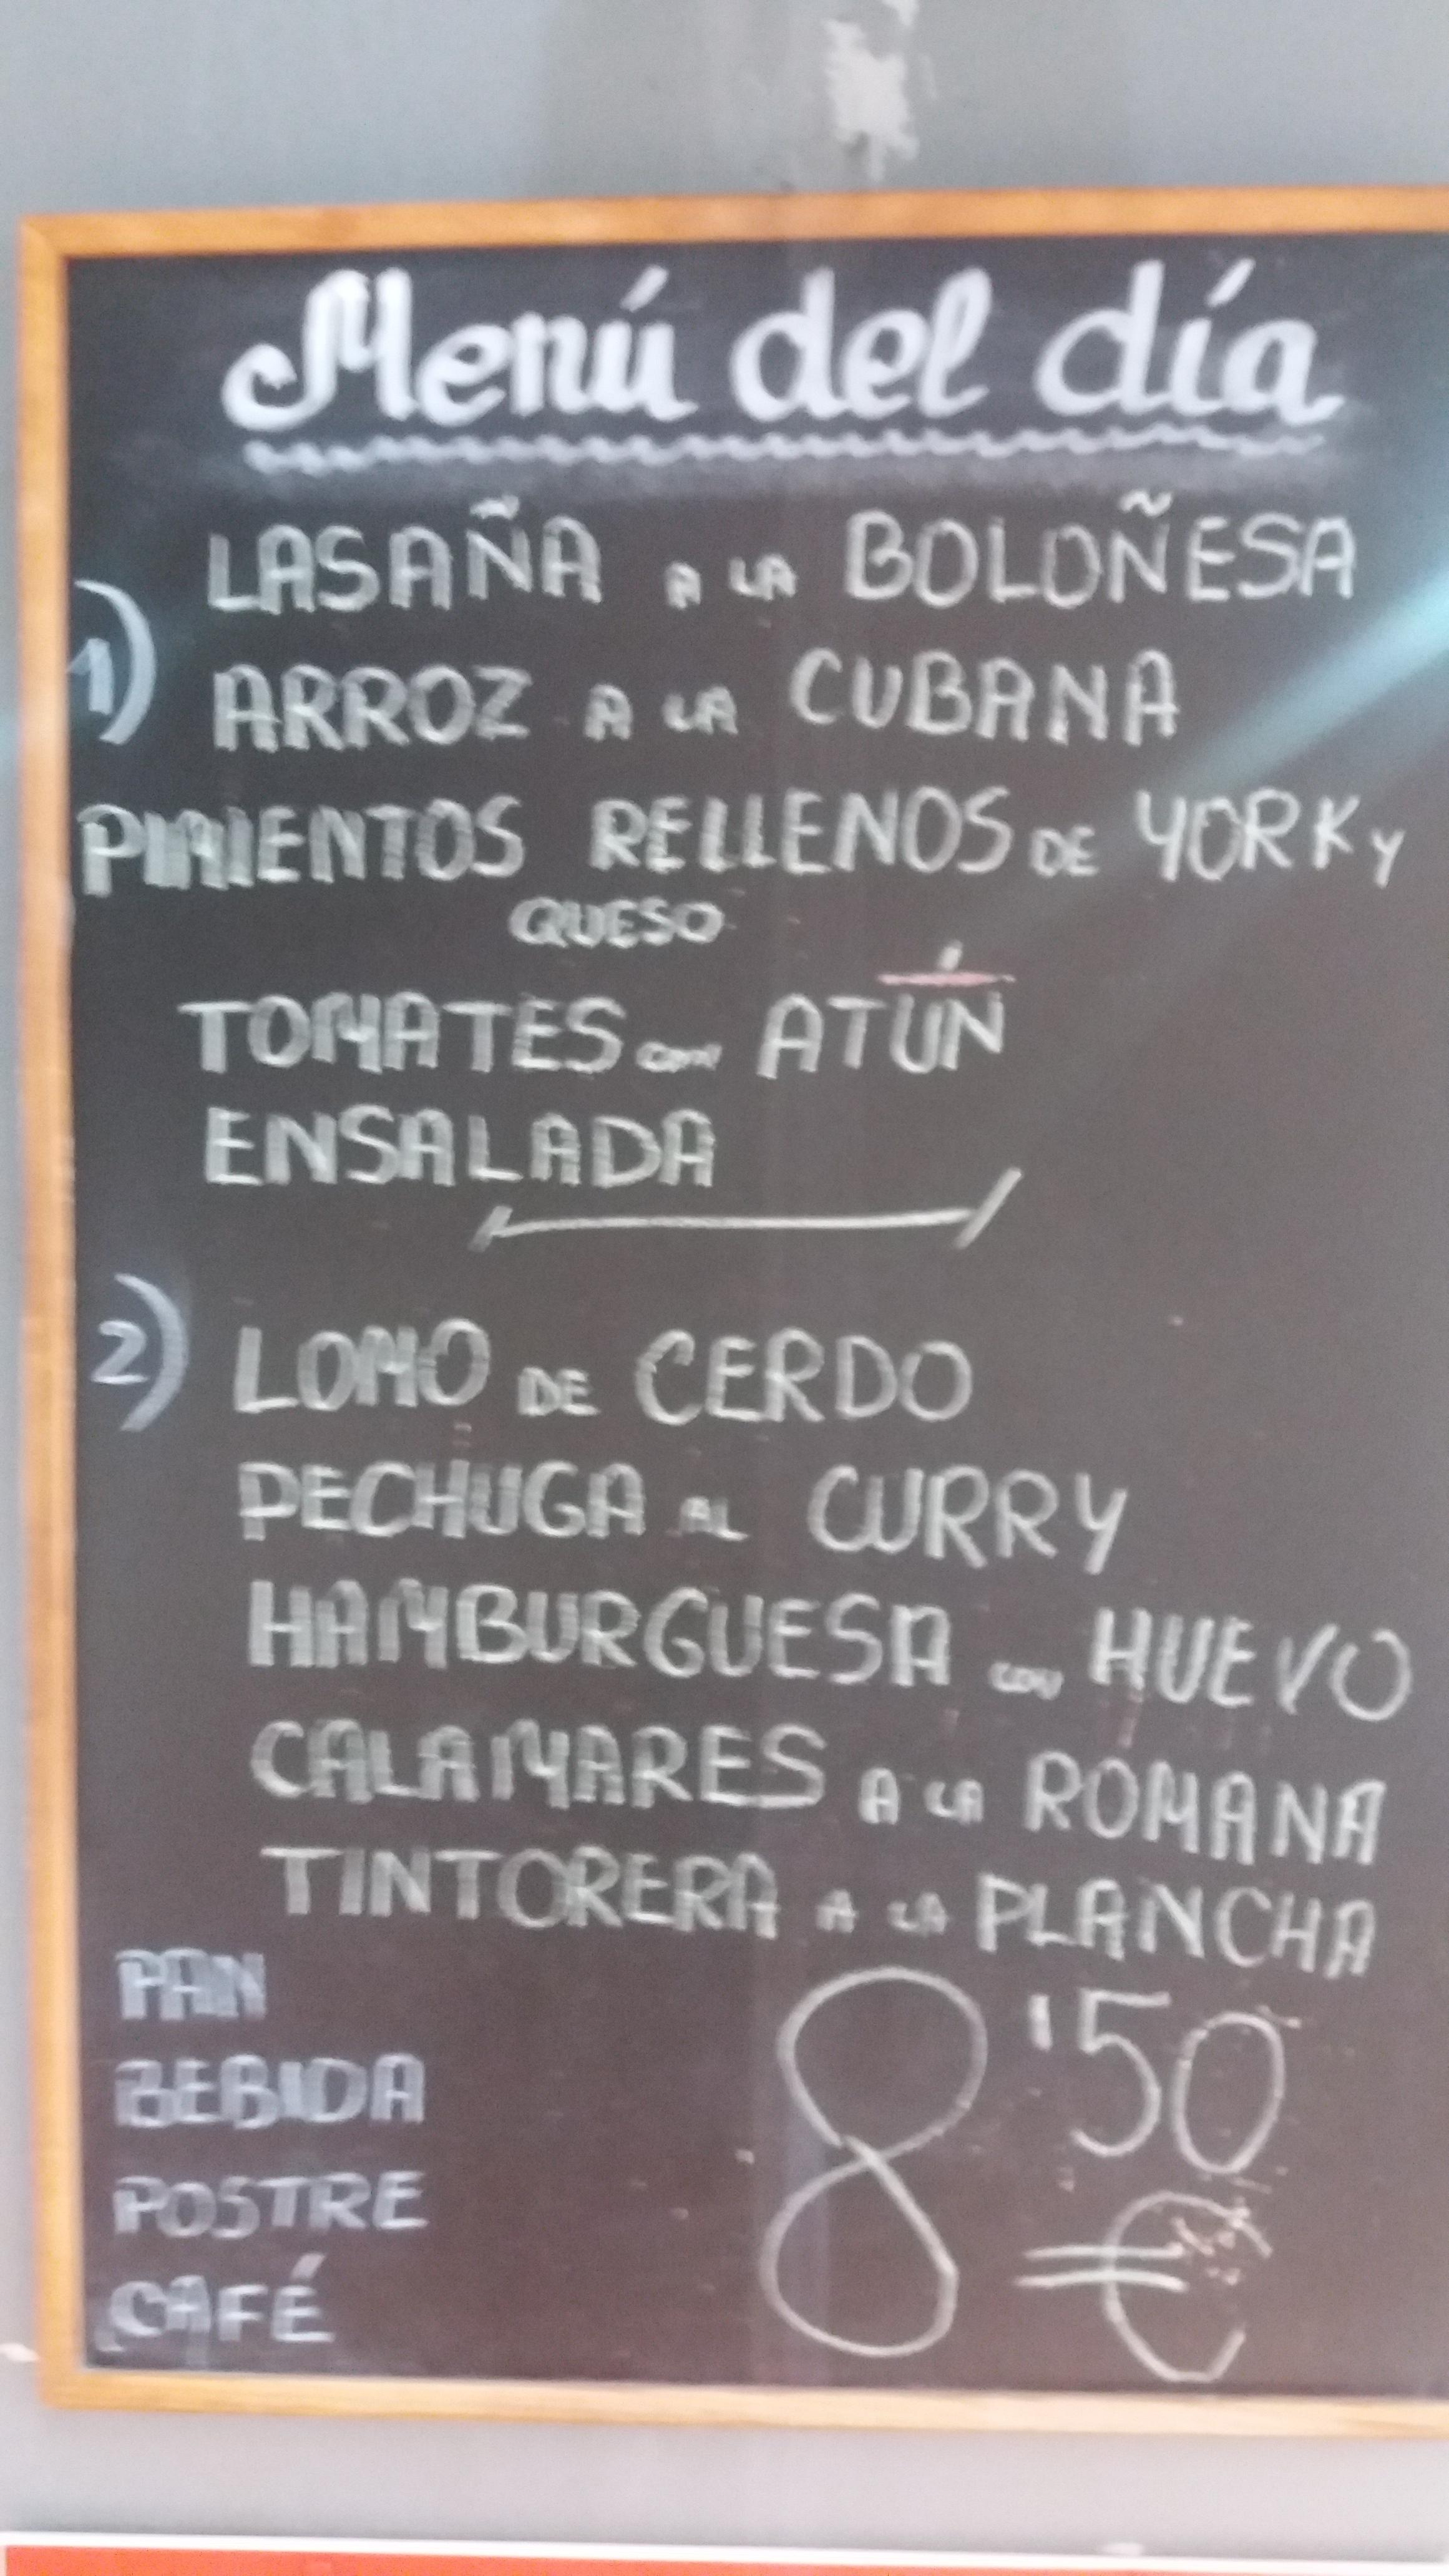 Menú del día
LASAÑA A LA BOLOÑESA
1)
ARROZ A LA CUBANA
PIMIENTOS RELLENOS DE YORK Y
QUESO
TOMATES CON ATÚN
ENSALADA
2) LOMO DE CERDO
PECHUGA AL CURRY
HAMBURGUESA CON HUEVO
CALAMARES A LA ROMANA
TINTORERA A LA PLANCHA
PAN
BEBIDA
POSTRE
CAFÉ
8'50
€